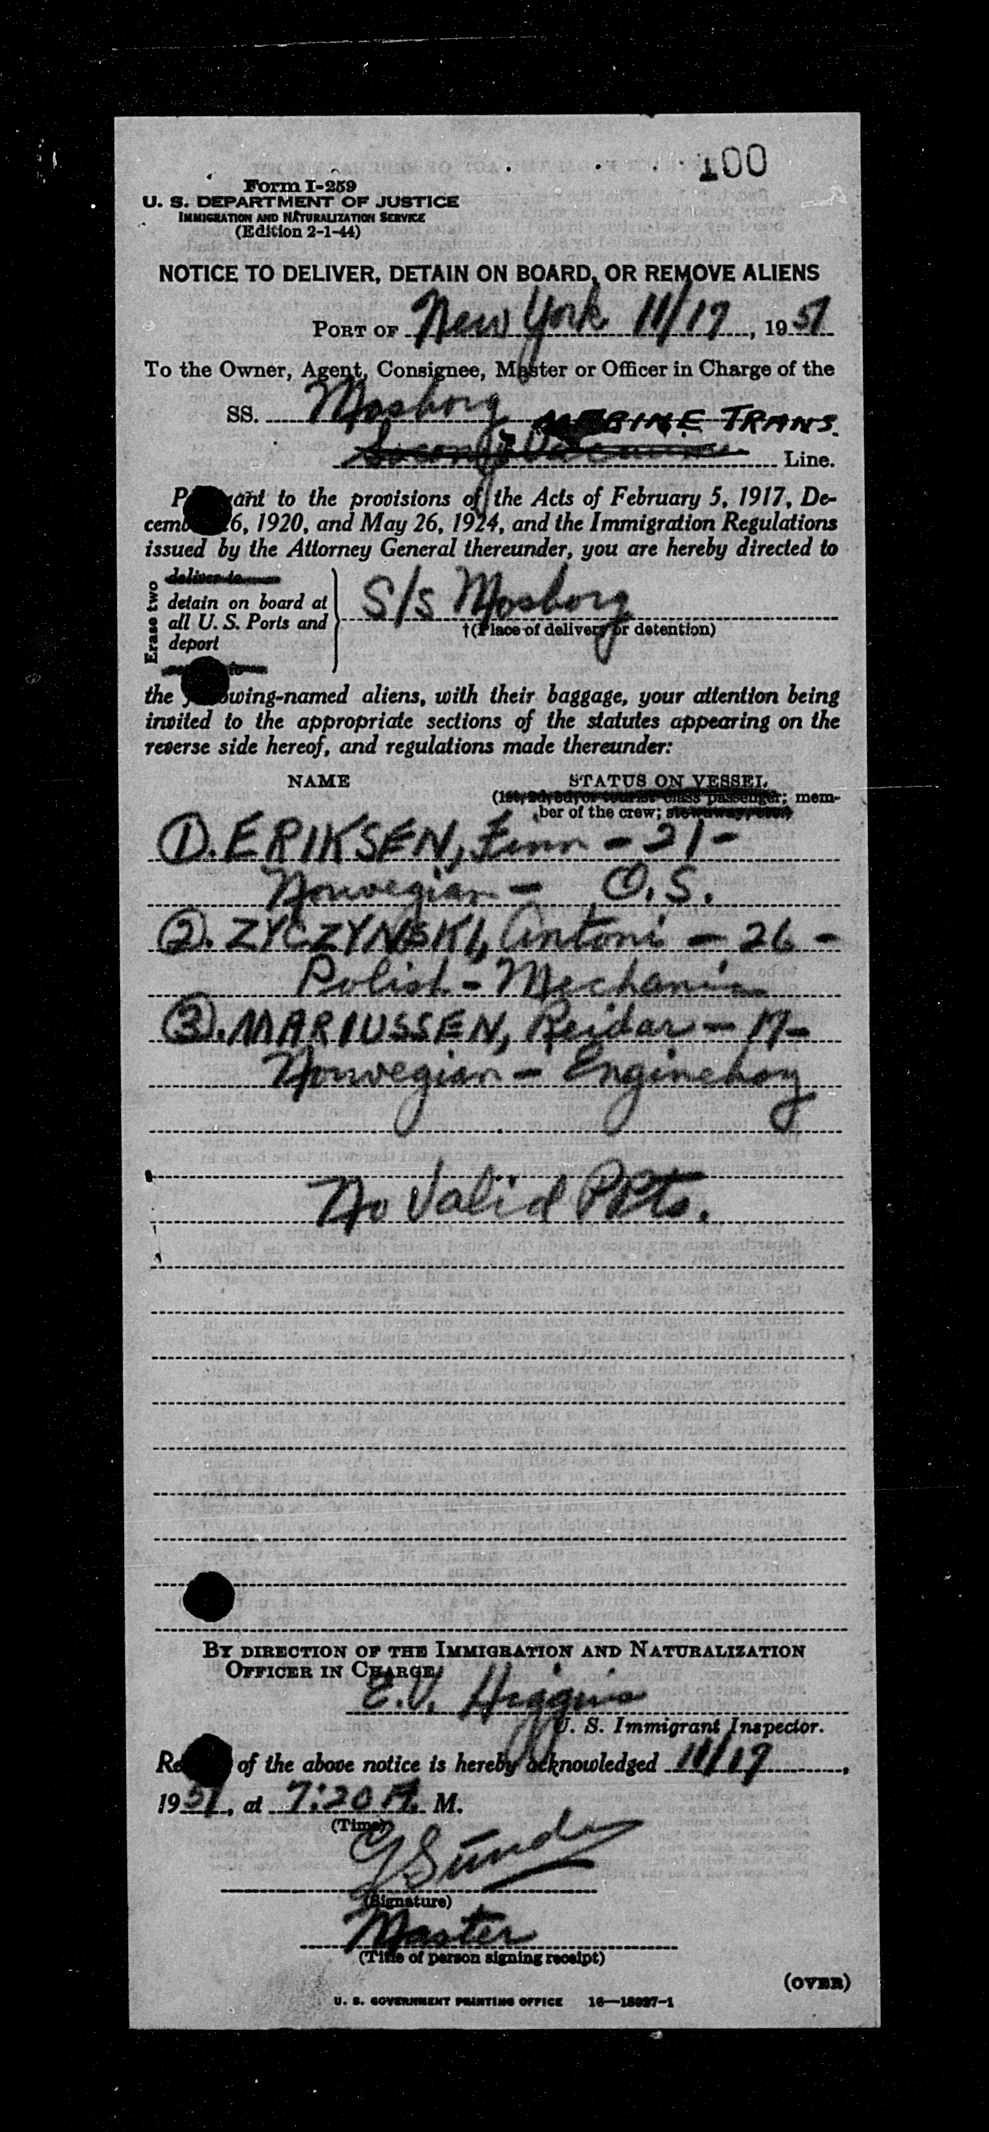 100
Form I-259
U. S. DEPARTMENT OF JUSTICE
IMMIGRATION AND NATURALIZATION SERVICE
(Edition 2-1-44)
NOTICE TO DELIVER, DETAIN ON BOARD, OR REMOVE ALIENS
PORT OF New York 11/19, 1951
To the Owner, Agent, Consignee, Master or Officer in Charge of the
SS. Mosborg MARINE TRANS.
Socony Vacuum Line.
Pursuant to the provisions of the Acts of February 5, 1917, De-
cember 26, 1920, and May 26, 1924, and the Immigration Regulations
issued by the Attorney General thereunder, you are hereby directed to
Erase two
deliver to
detain on board at
all U. S. Ports and
deport
to
S/S Mosborg
†(Place of delivery or detention)
the following-named aliens, with their baggage, your attention being
invited to the appropriate sections of the statutes appearing on the
reverse side hereof, and regulations made thereunder:
NAME STATUS ON VESSEL
(1st, 2d, 3d, or tourist class passenger; mem-
ber of the crew;
①. ERIKSEN, Finn - 21 -
Norwegian - O.S.
②. ZYCZYNSKI, Antoni - 26 -
Polish - Mechanic
③. MARIUSSEN, Reidar - 17 -
Norwegian - Engineboy
No Valid PPts.
BY DIRECTION OF THE IMMIGRATION AND NATURALIZATION
OFFICER IN CHARGE,
E.V. Higgins
U. S. Immigrant Inspector.
Receipt of the above notice is hereby acknowledged 11/19,
1951, at 7:20 A. M.
(Time)
G Sunde
(Signature)
Master
(Title of person signing receipt)
(OVER)
U. S. GOVERNMENT PRINTING OFFICE 16—18027-1